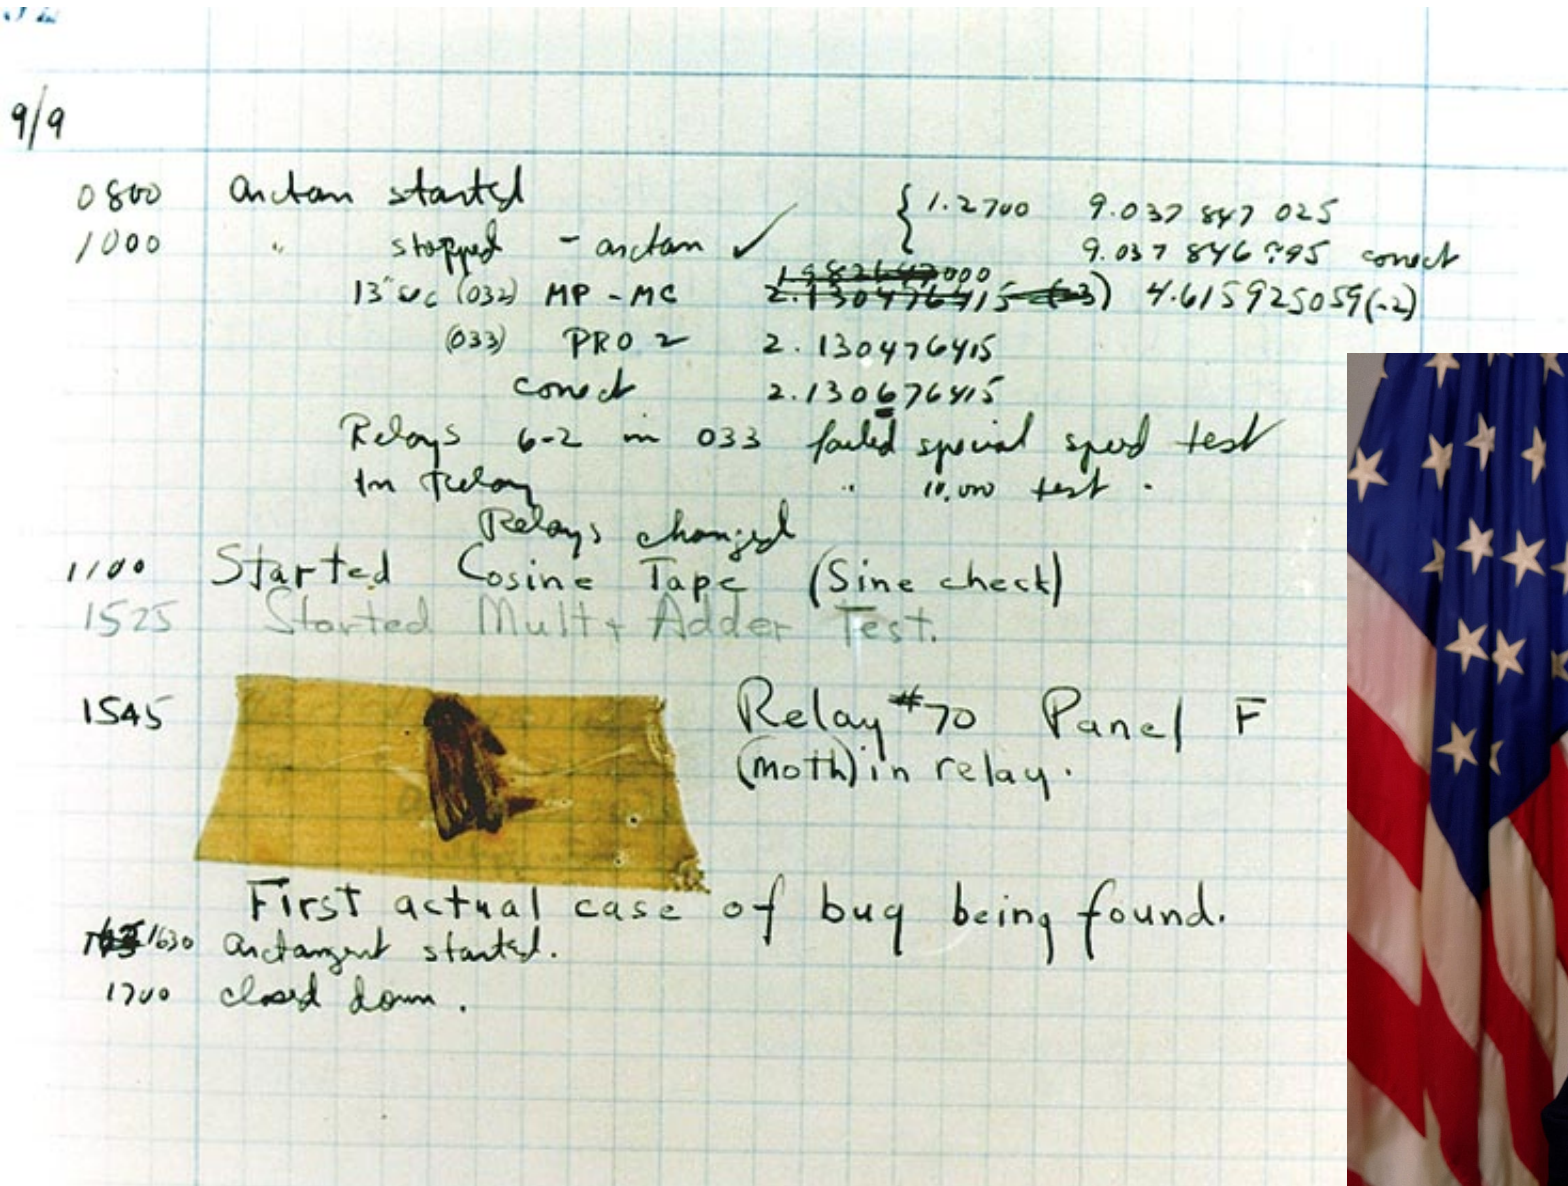 9/9
0800 Arctan started { 1.2700 9.037 847 025
1000 " stopped - arctan ✓ 9.037 846 795 correct
13" uc (032) MP - MC 4.615925059(-2)
(033) PRO 2 2.130476415
correct 2.130676415
Relays 6-2 in 033 failed special speed test
In Relay " 10,000 test .
Relays changed
1100 Started Cosine Tape (Sine check)
1525 Started Mult + Adder Test.
1545 Relay #70 Panel F
(moth) in relay.
First actual case of bug being found.
1630 Arctangent started.
1700 closed down .